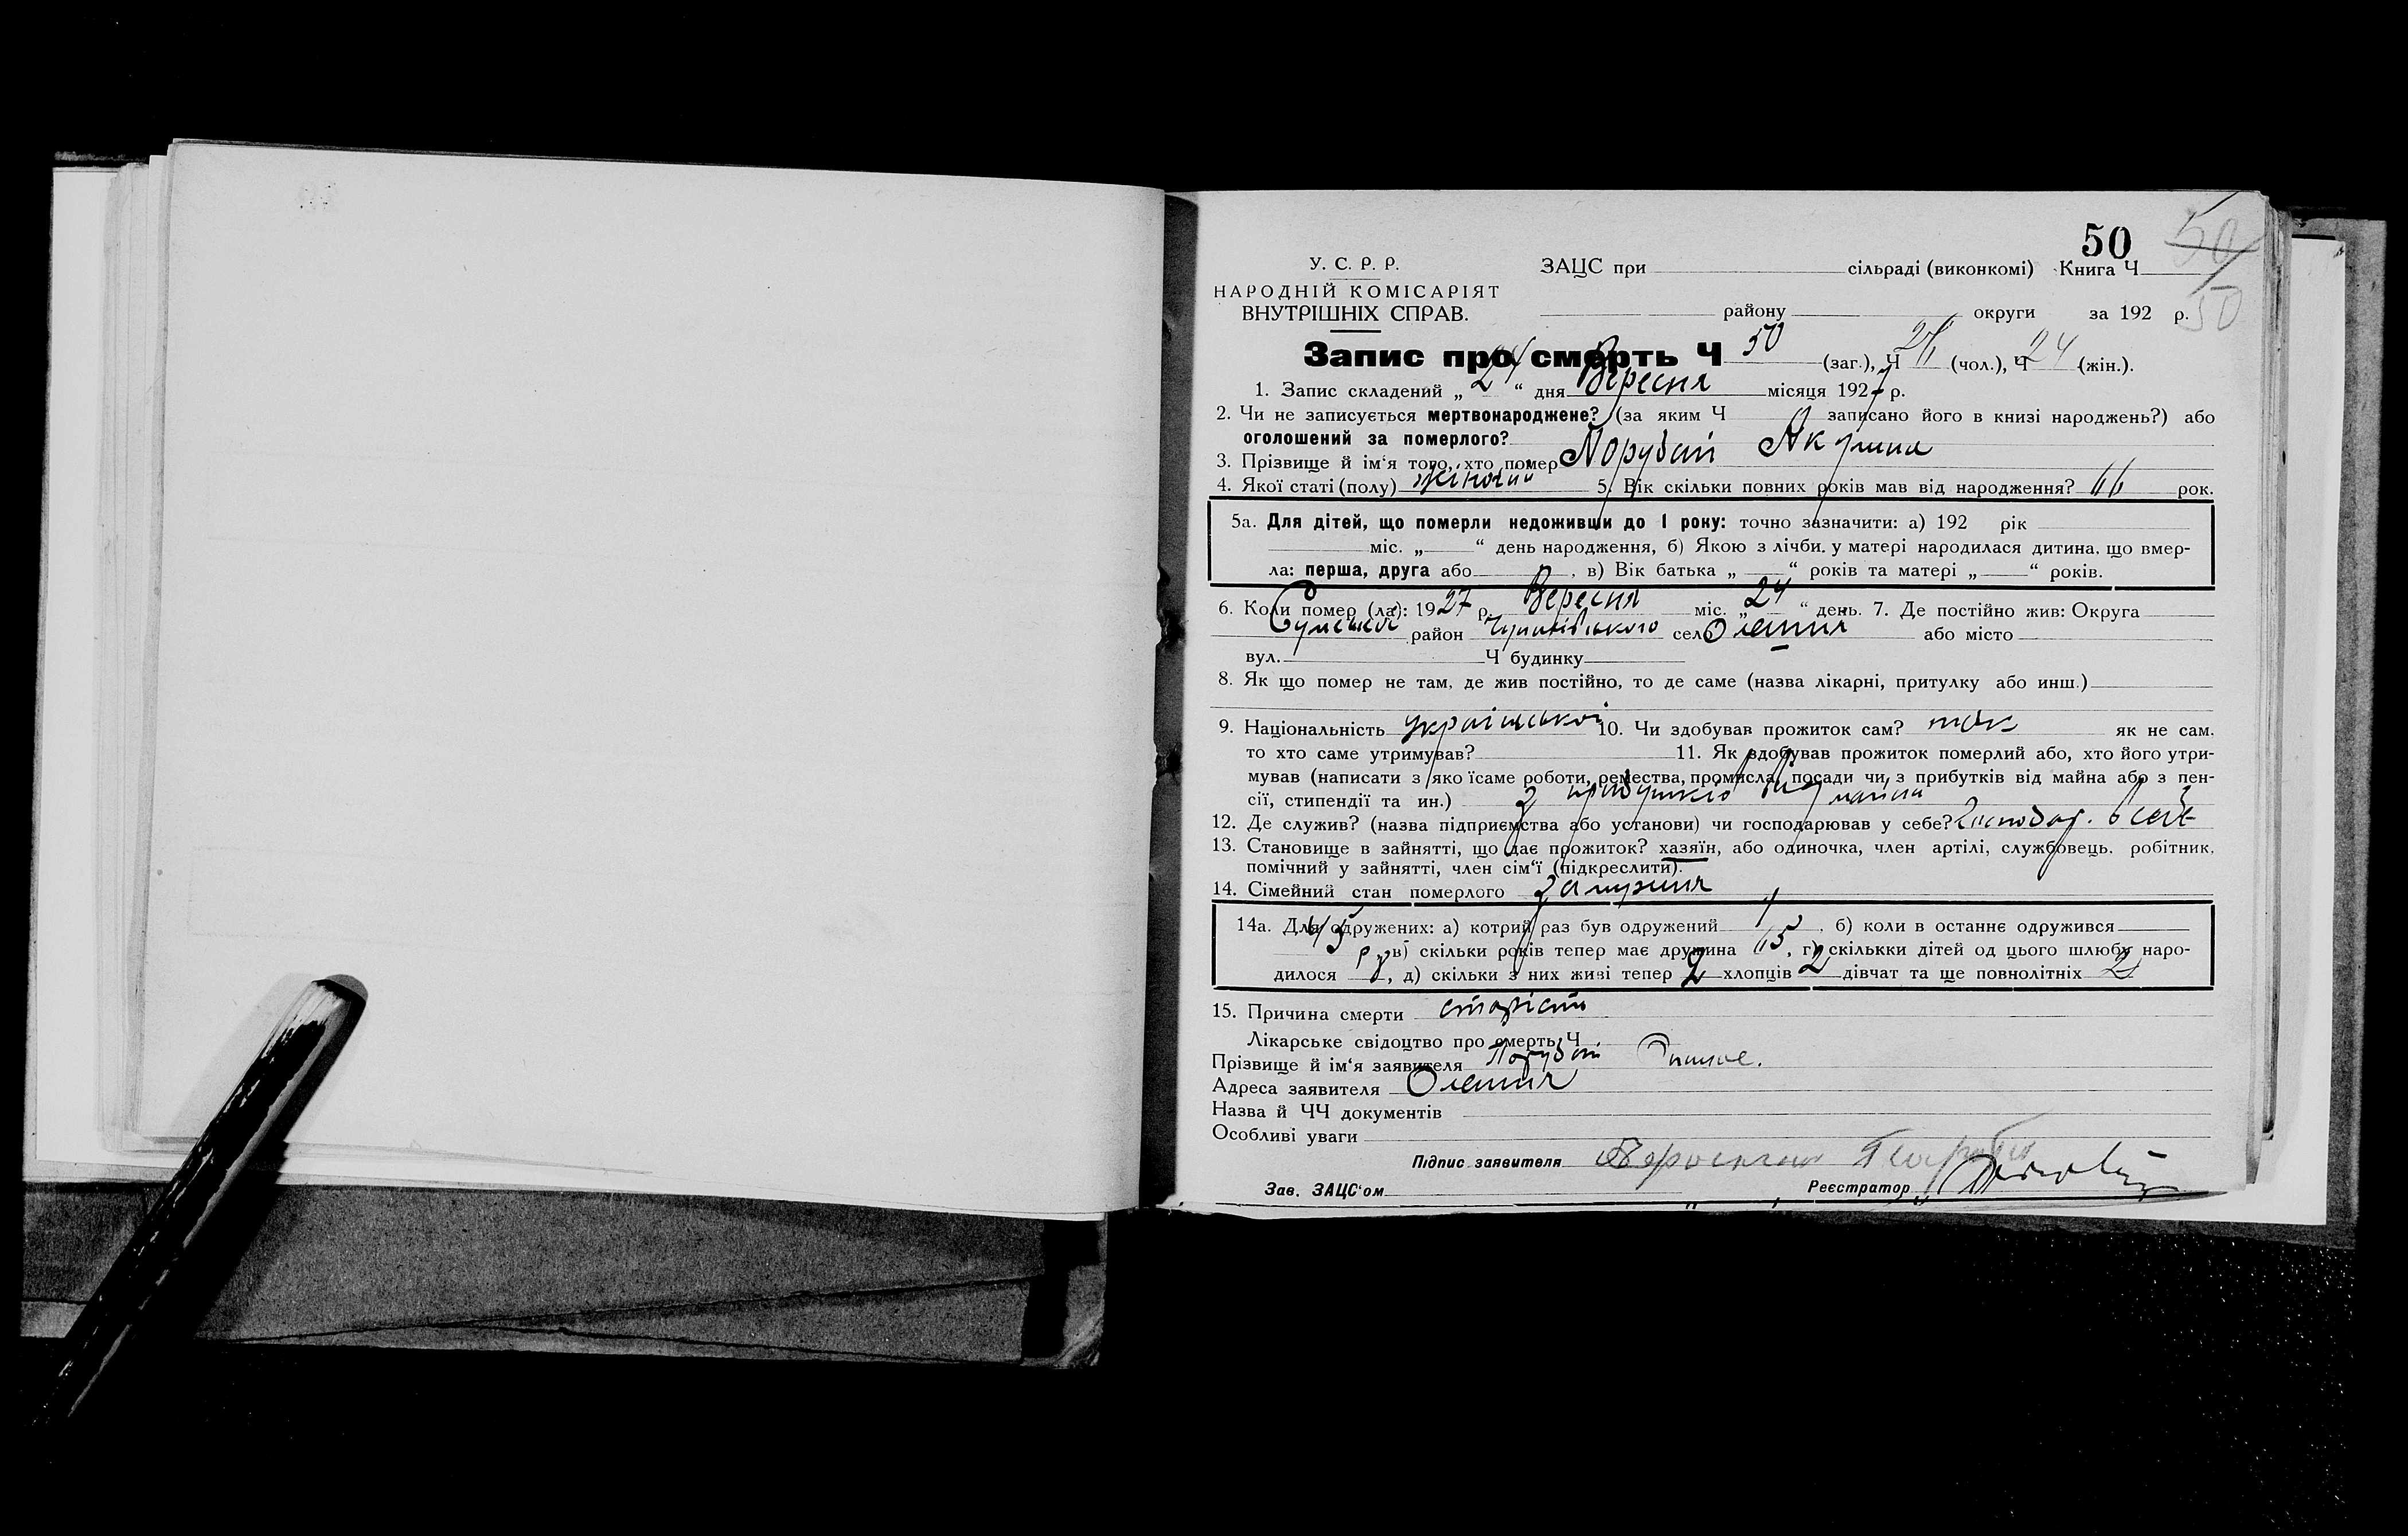 50
У. С. Р. Р. ЗАЦС при сільраді (виконкомі) Книга Ч 50
НАРОДНІЙ КОМІСАРІЯТ
ВНУТРІШНІХ СПРАВ. району округи за 192 р. 50
Запис про смерть Ч 50 (заг.), Ч 26 (чол.), Ч 24 (жін.).
1. Запис складений „ 24 “ дня Вересня місяця 1927 р.
2. Чи не записується мертвонароджене? (за яким Ч записано його в книзі народжень?) або
оголошений за померлого?
3. Прізвище й ім‘я того, хто помер Порубай Акулина
4. Якої статі (полу) жіночий 5. Вік скільки повних років мав від народження? 66 рок.
5а. Для дітей, що померли недоживши до 1 року: точно зазначити: а) 192 рік
міс. „ “ день народження, б) Якою з лічби. у матері народилася дитина, що вмер-
ла: перша, друга або , в) Вік батька „ “ років та матері „ “ років.
6. Коли помер (ла): 1927 р. Вересня міс. „ 24 “ день. 7. Де постійно жив: Округа
Сумської район село Олешня або місто
вул. Ч будинку
8. Як що помер не там, де жив постійно, то де саме (назва лікарні, притулку або инш.)
9. Національність української 10. Чи здобував прожиток сам? так як не сам.
то хто саме утримував? 11. Як здобував прожиток померлий або, хто його утри-
мував (написати з яко їсаме роботи, ремества, промисла, посади чи з прибутків від майна або з пен-
сії, стипендії та ин.) з прибутків від майна
12. Де служив? (назва підприємства або установи) чи господарював у себе? Господар. в себе
13. Становище в зайнятті, що дає прожиток? хазяїн, або одиночка, член артілі, службовець. робітник.
помічний у зайнятті, член сім‘ї (підкреслити).
14. Сімейний стан померлого замужня
14а. Для одружених: а) котрий раз був одружений 1, б) коли в останнє одружився
р., в) скільки років тепер має дружина 65, г) скількки дітей од цього шлюбу наро-
дилося , д) скільки з них живі тепер 2 хлопців 2 дівчат та ще повнолітніх 2
15. Причина смерти старість
Лікарське свідоцтво про смерть Ч
Прізвище й ім‘я заявителя Порубай
Адреса заявителя Олешня
Назва й ЧЧ документів
Особливі уваги
Підпис заявителя
Зав. ЗАЦС‘ом Реєстратор